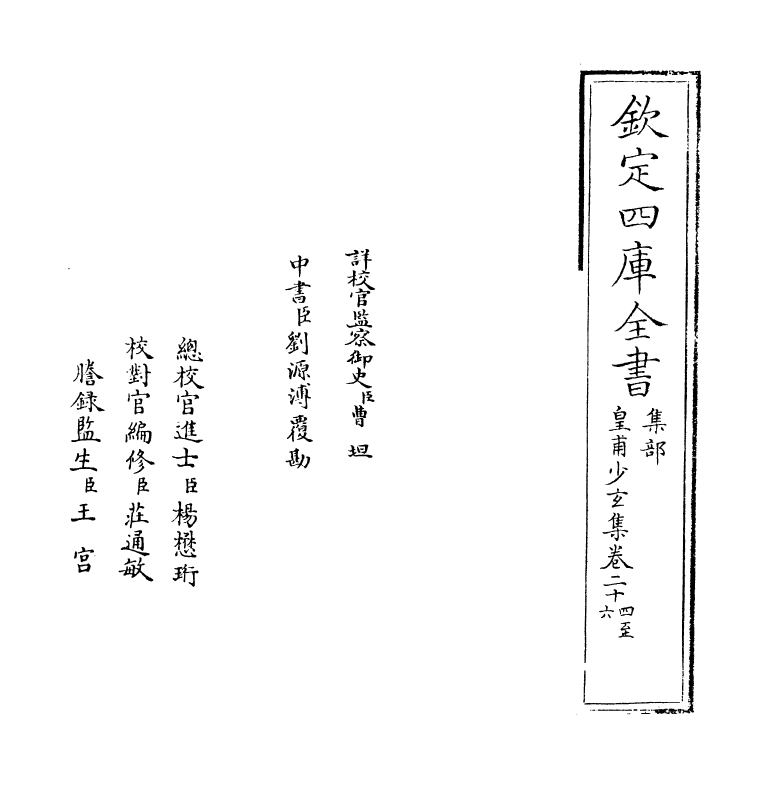 欽定四庫全書
集部
皇甫少玄集卷二十四至六
詳校官監察御史臣曹坦
中書臣劉源溥覆勘
總校官進士臣楊懋珩
校對官編修臣莊通敏
謄録監生臣王宫